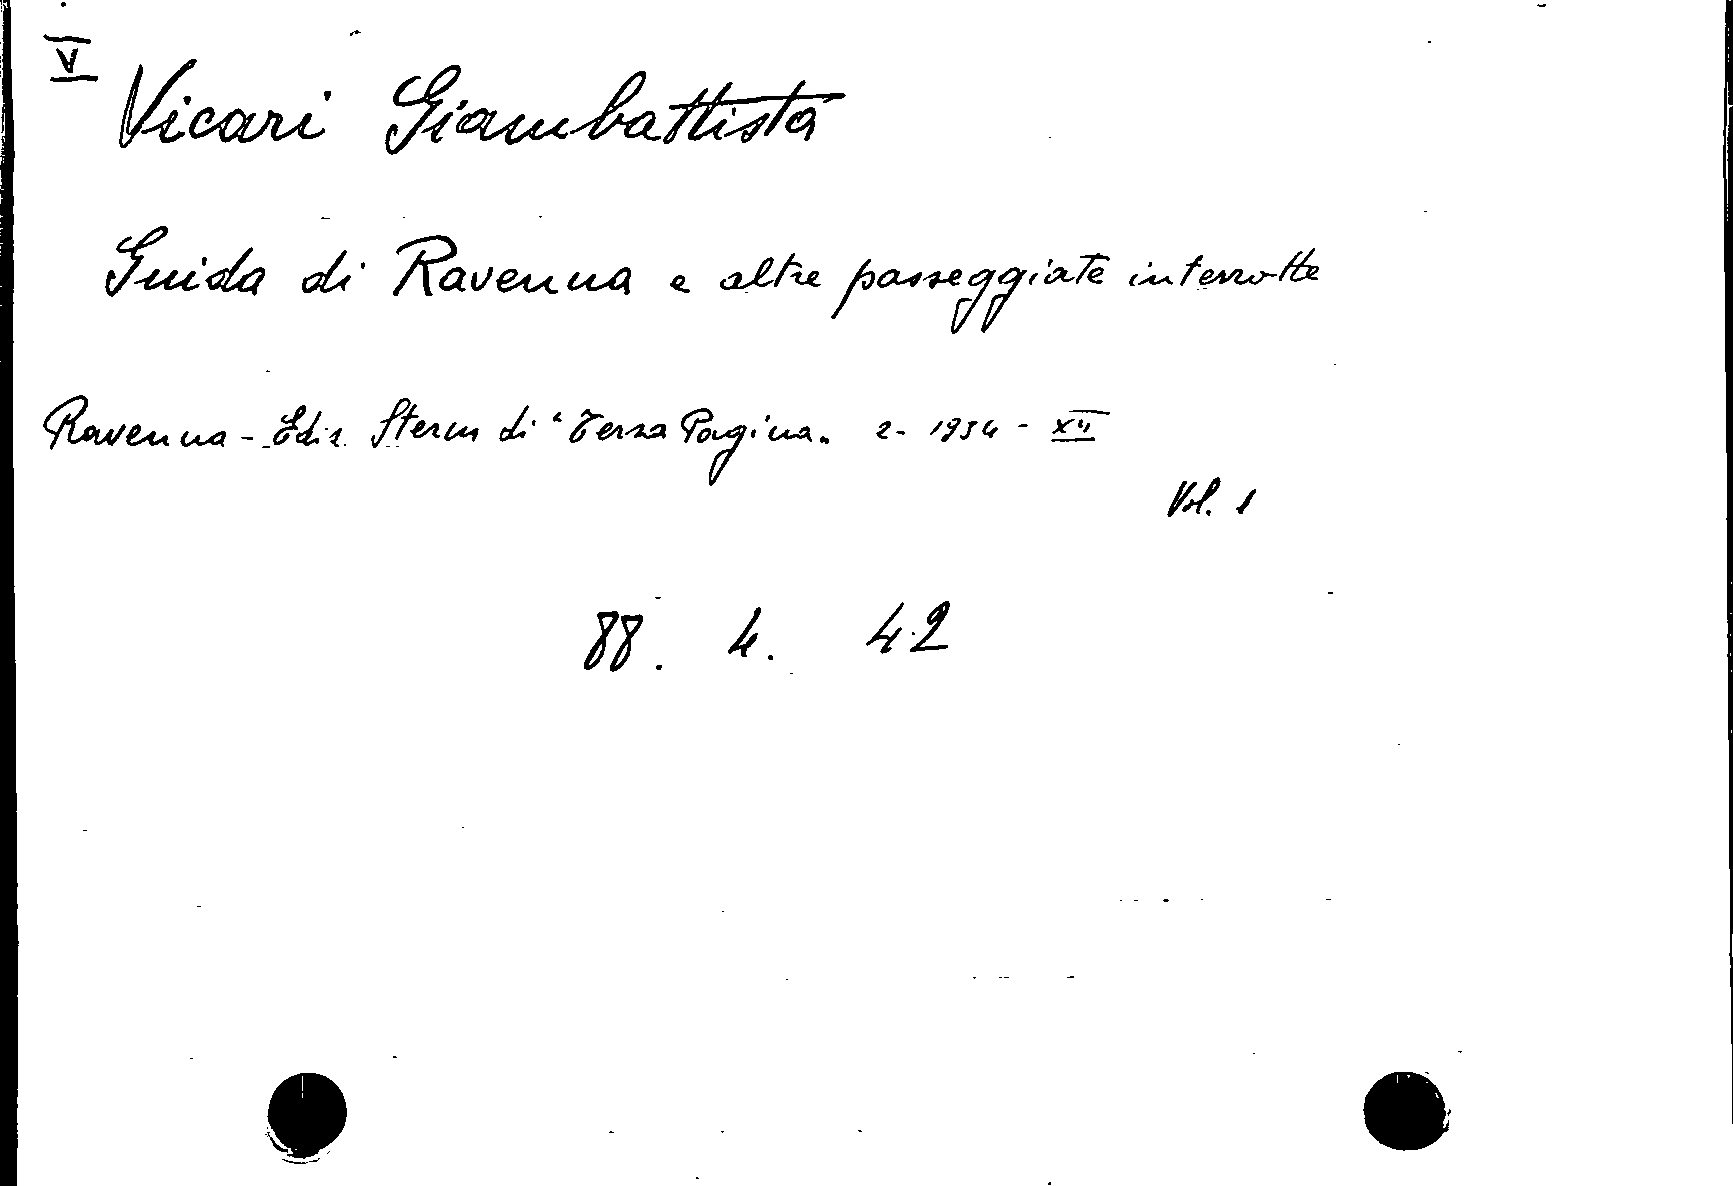 V
Vicari Giambattista
Guida di Ravenna e altre passeggiate interrotte
Ravenna - Ediz. Sterm di "Terza Pagina" 2 - 1934 - XII
Vol. 1
88. 4. 42